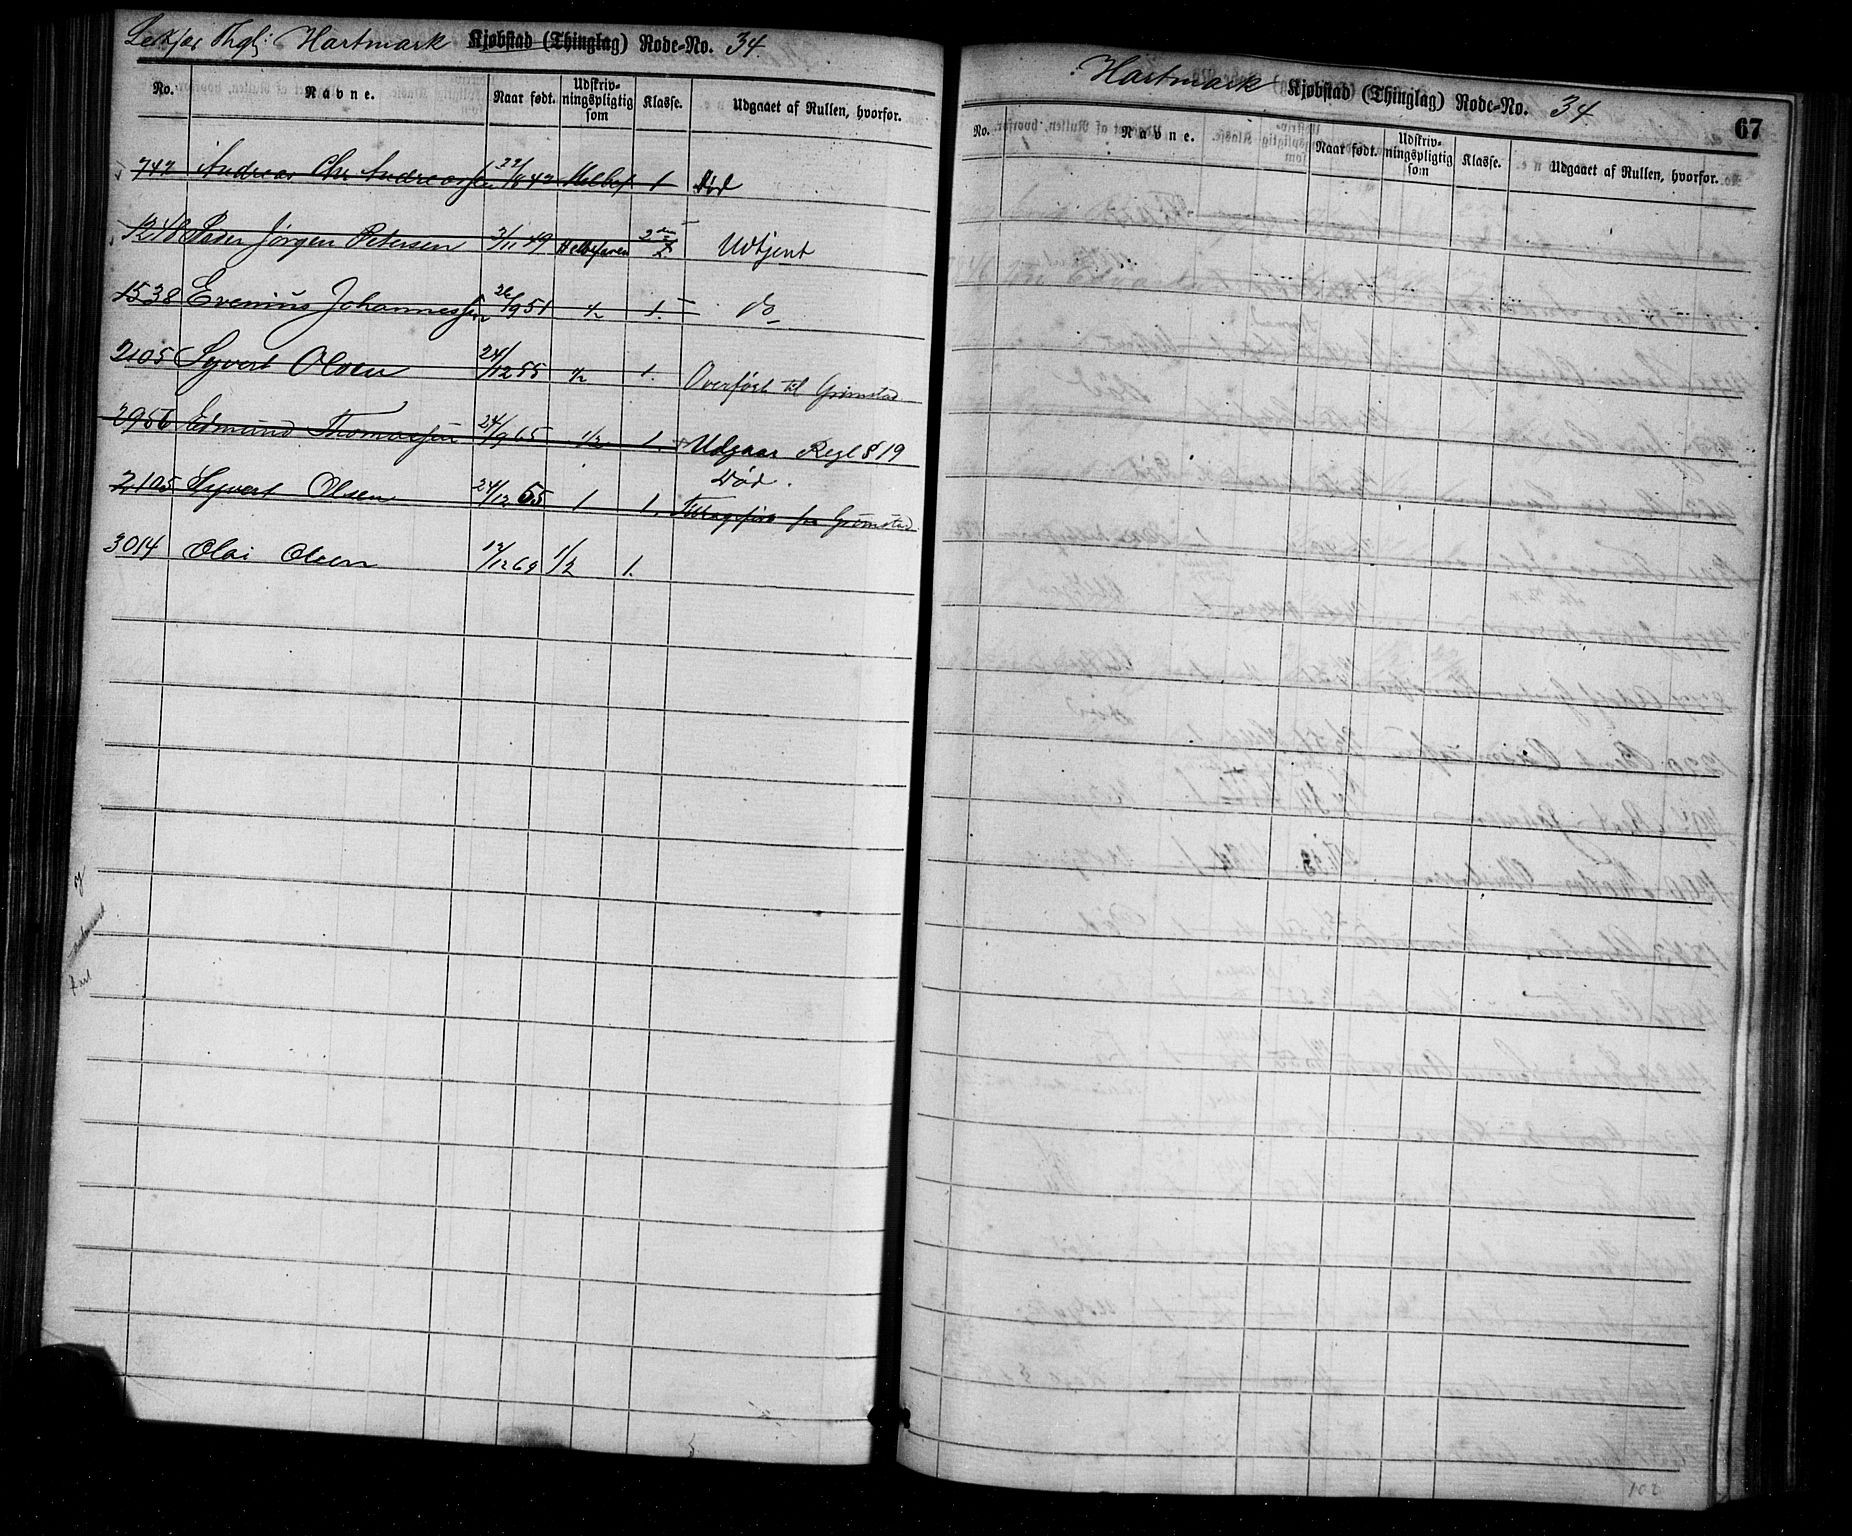 Hartmark Kjøbstad (Thinglag) Rode-No. 34
No. Navne. Naar født. Udskrivningspligtig som Klasse. Udgaaet af Rullen, hvorfor.
742 Andreas Chr Andreassen 22/8 42 1 Død
1248 Jørgen Petersen 2/11 49 Helbefaren 2 Udtjent
1538 Evenius Johannessen 26/9 51 1/2 1. do
2105 Syvert Olsen 24/12 55 1/2 1. Overført til Grimstad
2956 Edmund Thomassen 24/9 65 1/2 1. Udgaar Regl § 19
Død.
2105 Syvert Olsen 24/12 55 1 1. Tilbageført fra Grimstad
3014 Olai Olsen 12/12 69 1/2 1.
Hartmark Kjøbstad (Thinglag) Rode-No. 34
67
No. Navne. Naar født. Udskrivningspligtig som Klasse. Udgaaet af Rullen, hvorfor.
102